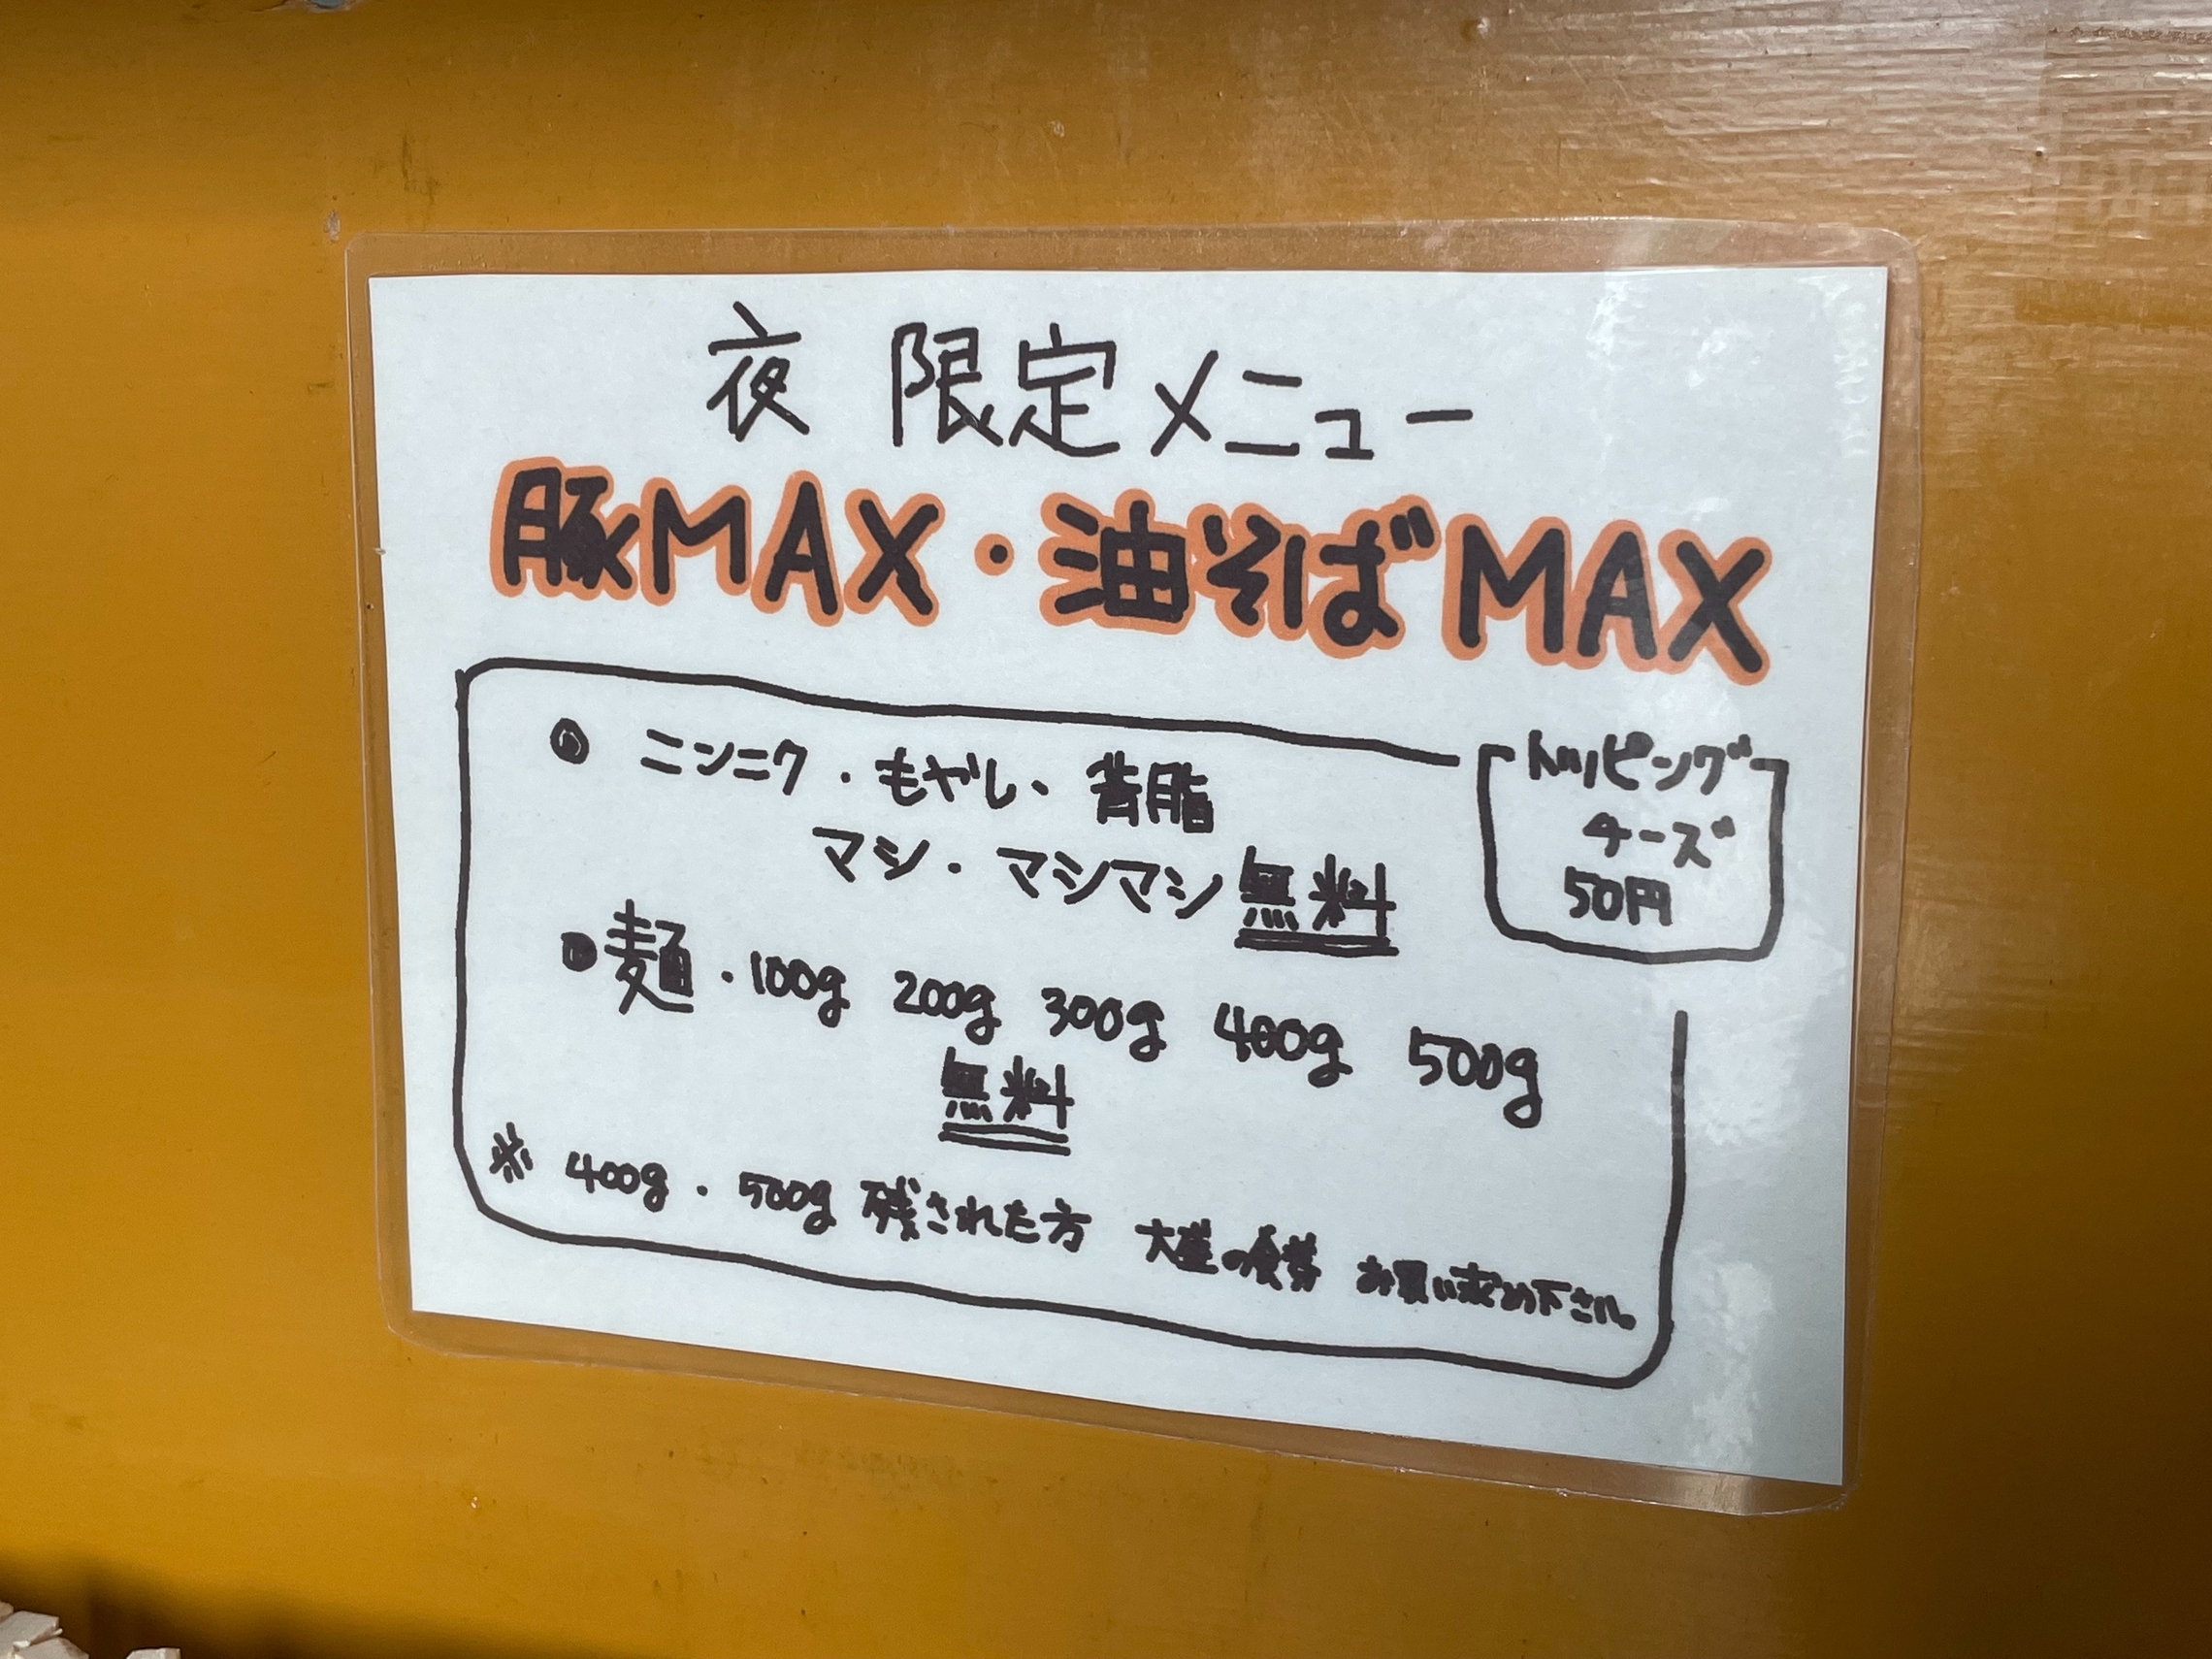 夜 限定メニュー
豚MAX・油そばMAX
● ニンニク・もやし・背脂
マシ・マシマシ無料
トッピング
チーズ
50円
●麺・100g 200g 300g 400g 500g
無料
※ 400g・500g 残された方 大盛の食券 お買い求め下さい。